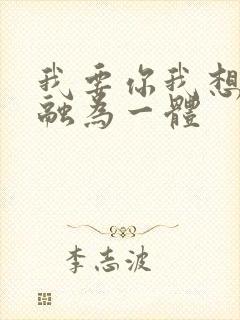 我要你我想
融為一體
李志波